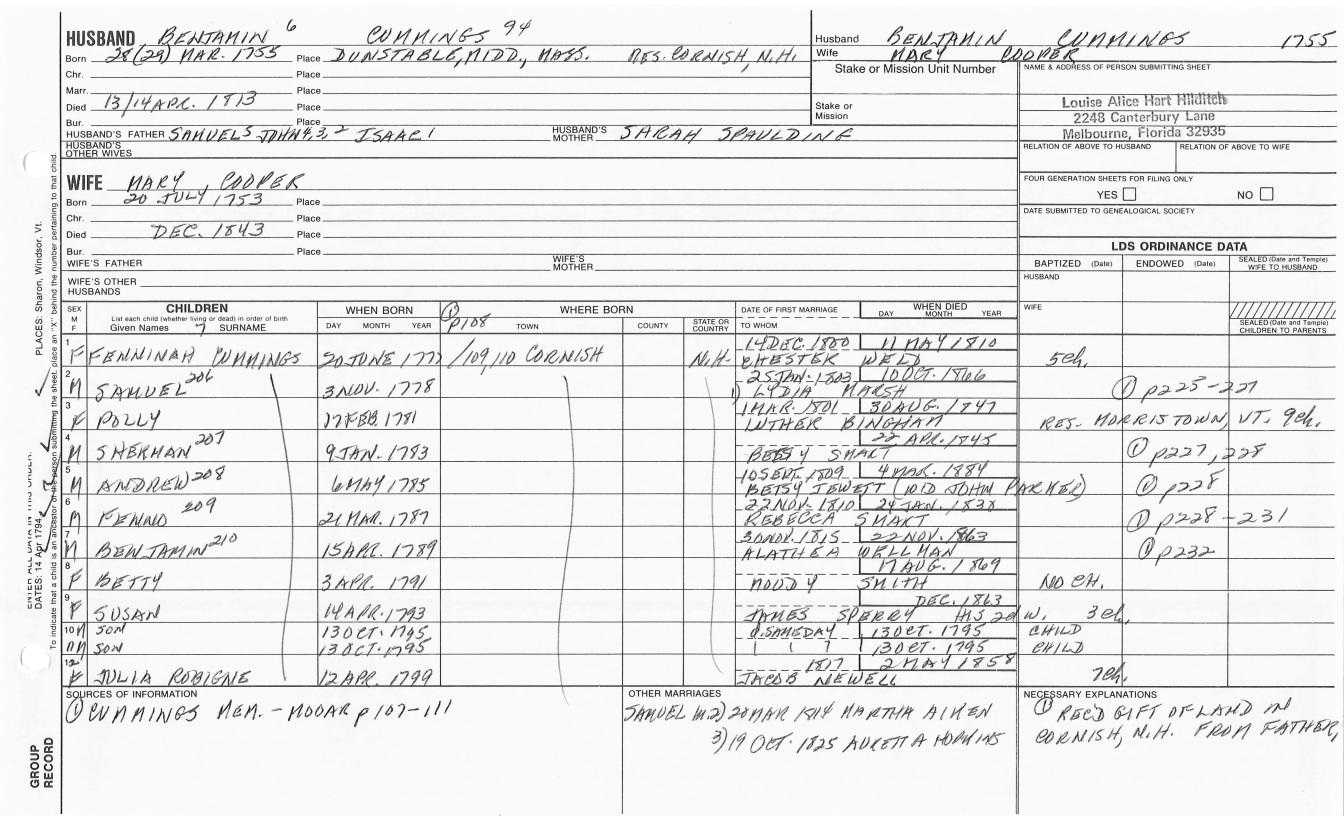 HUSBAND BENJAMIN 6 CUMMINGS 94
Born 28(29) MAR. 1755 Place DUNSTABLE, MIDD., MASS. RES. CORNISH, N.H.
Chr. Place
Marr. Place
Died 13/14 APR. 1813 Place
Bur. Place
HUSBAND'S FATHER SAMUEL5 JOHN4,3,2 ISAAC1 HUSBAND'S MOTHER SARAH SPAULDINE
HUSBAND'S OTHER WIVES
Husband BENJAMIN CUMMINGS 1755
Wife MARY COOPER
Stake or Mission Unit Number
Stake or Mission
NAME & ADDRESS OF PERSON SUBMITTING SHEET
Louise Alice Hart Hilditch
2248 Canterbury Lane
Melbourne, Florida 32935
RELATION OF ABOVE TO HUSBAND RELATION OF ABOVE TO WIFE
FOUR GENERATION SHEETS FOR FILING ONLY
YES NO
DATE SUBMITTED TO GENEALOGICAL SOCIETY
WIFE MARY, COOPER
Born 20 JULY 1753 Place
Chr. Place
Died DEC. 1843 Place
Bur. Place
WIFE'S FATHER WIFE'S MOTHER
WIFE'S OTHER HUSBANDS
LDS ORDINANCE DATA
BAPTIZED (Date) ENDOWED (Date) SEALED (Date and Temple) WIFE TO HUSBAND
HUSBAND
WIFE
SEALED (Date and Temple) CHILDREN TO PARENTS
SEX M F
CHILDREN
List each child (whether living or dead) in order of birth
Given Names 7 SURNAME
WHEN BORN
DAY MONTH YEAR
① p108
WHERE BORN
TOWN COUNTY STATE OR COUNTRY
DATE OF FIRST MARRIAGE
TO WHOM
WHEN DIED
DAY MONTH YEAR
1 F FENNINAH CUMMINGS 20 JUNE 1777 /109,110 CORNISH N.H. 14 DEC. 1800 11 MAY 1810
CHESTER WELD 5ch.
2 M SAMUEL 206 3 NOV. 1778 25 JAN. 1803 10 OCT. 1866
1) LYDIA MARSH ① p225-227
3 F POLLY 17 FEB. 1781 1 MAR. 1801 30 AUG. 1847
LUTHER BINGHAM RES. MORRISTOWN, VT. 9ch.
4 M SHERMAN 207 9 JAN. 1783 22 APR. 1845
BETSY SMART ① p227,228
5 M ANDREW 208 6 MAY 1785 10 SEPT. 1809 4 MAR. 1884
BETSY JEWETT (WID JOHN PARKER) ① p228
6 M FENNO 209 21 MAR. 1787 22 NOV. 1810 24 JAN. 1838
REBECCA SMART ① p228-231
7 M BENJAMIN 210 15 APR. 1789 30 NOV. 1815 22 NOV. 1863
ALATHEA WELLMAN ① p232
8 F BETTY 3 APR. 1791 17 AUG. 1869
MOODY SMITH NO CH.
9 F SUSAN 14 APR. 1793 DEC. 1863
JAMES SPERRY HIS 2d W. 3 ch.
10 M SON 13 OCT. 1795 d. SAME DAY 13 OCT. 1795 CHILD
11 M SON 13 OCT. 1795 13 OCT. 1795 CHILD
12 F JULIA ROBIGNE 12 APR. 1799 1817 2 MAY 1858
JACOB NEWELL 7ch.
SOURCES OF INFORMATION
① CUMMINGS MEM. - MOOAR p 107-111
OTHER MARRIAGES
SAMUEL m 2) 20 MAR 1814 MARTHA AIKEN
3) 19 OCT. 1825 AURETTA HOPKINS
NECESSARY EXPLANATIONS
① REC'D GIFT OF LAND IN
CORNISH, N.H. FROM FATHER,
ENTER ALL DATA IN THIS ORDER:
DATES: 14 Apr 1794
PLACES: Sharon, Windsor, Vt.
To indicate that a child is an ancestor of the person submitting the sheet, place an "X" behind the number pertaining to that child.
GROUP
RECORD